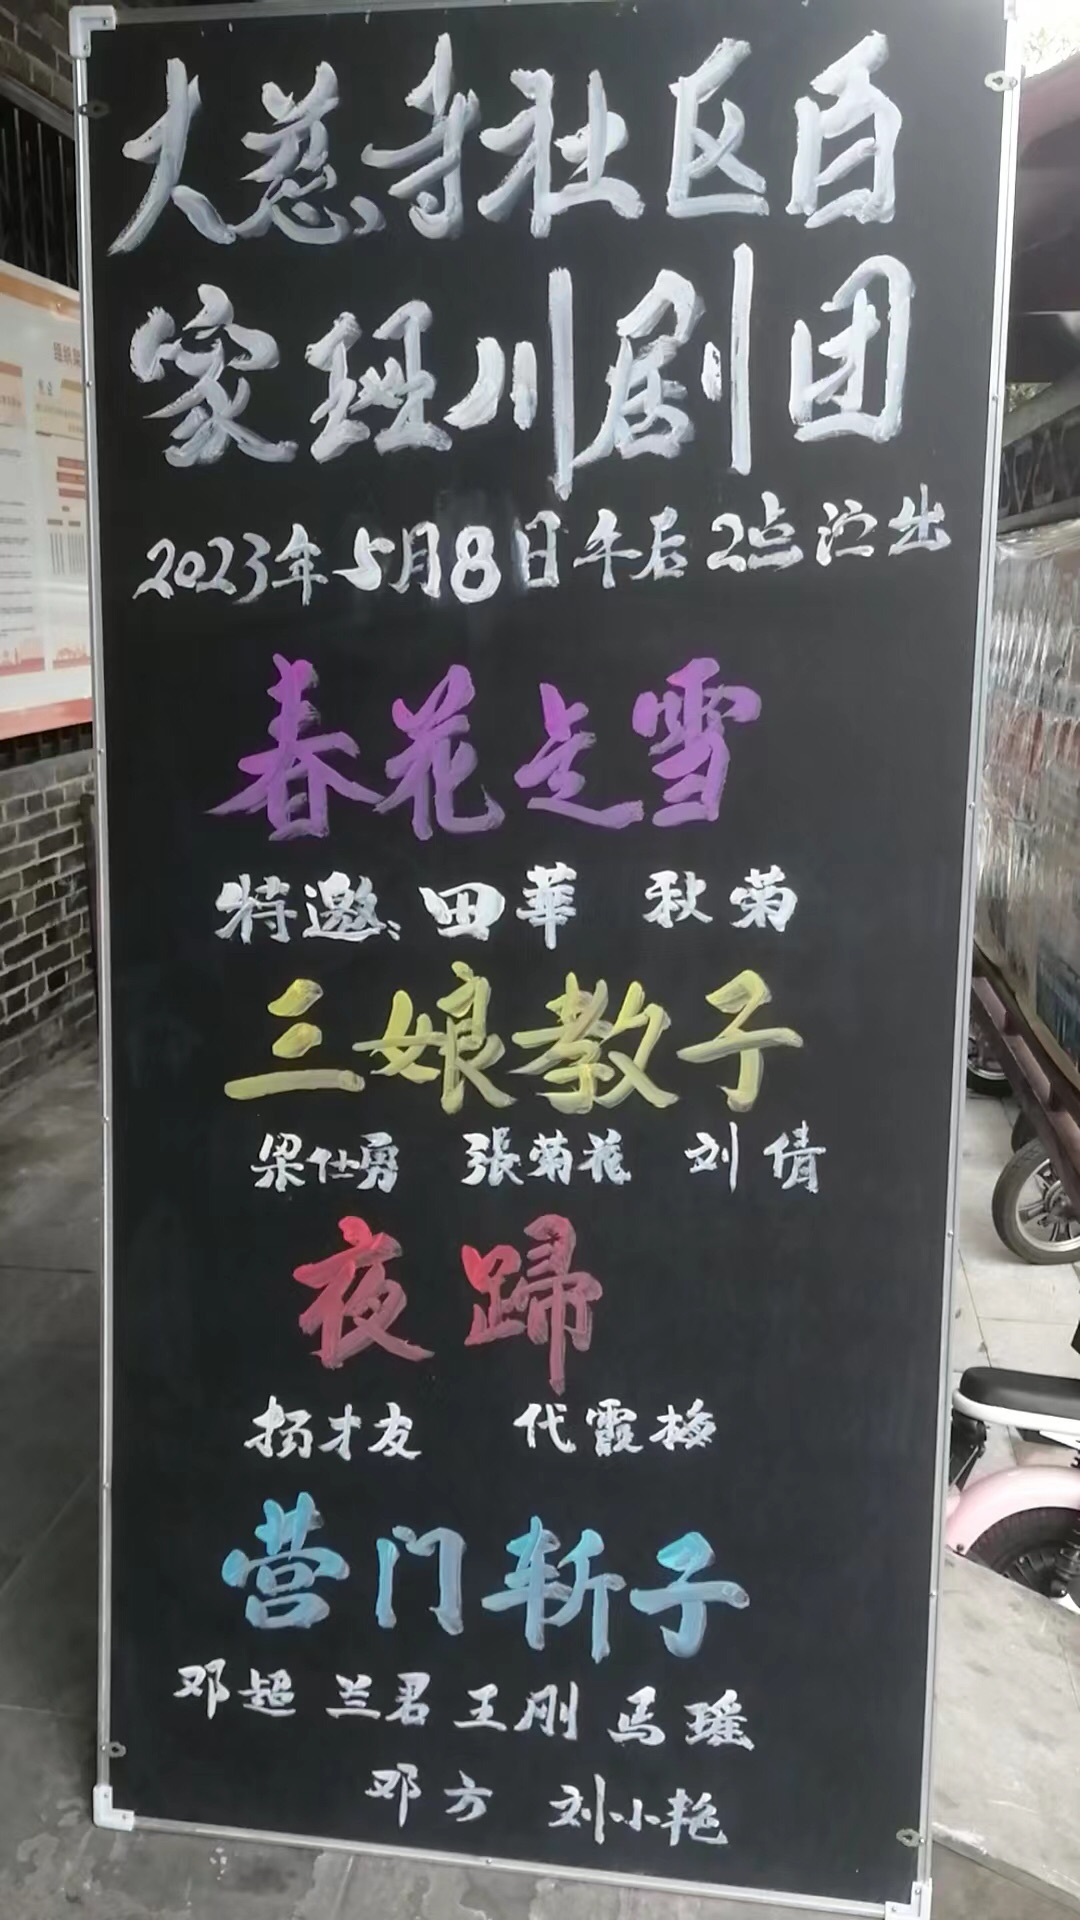 大慈寺社区百
家班川剧团
2023年5月8日午后2点演出
春花走雪
特邀：田華 秋菊
三娘教子
梁仕勇 張菊花 刘倩
夜蹄
杨才友 代霞梅
营门斩子
邓超 兰君 王刚 马瑶
邓方 刘小艳